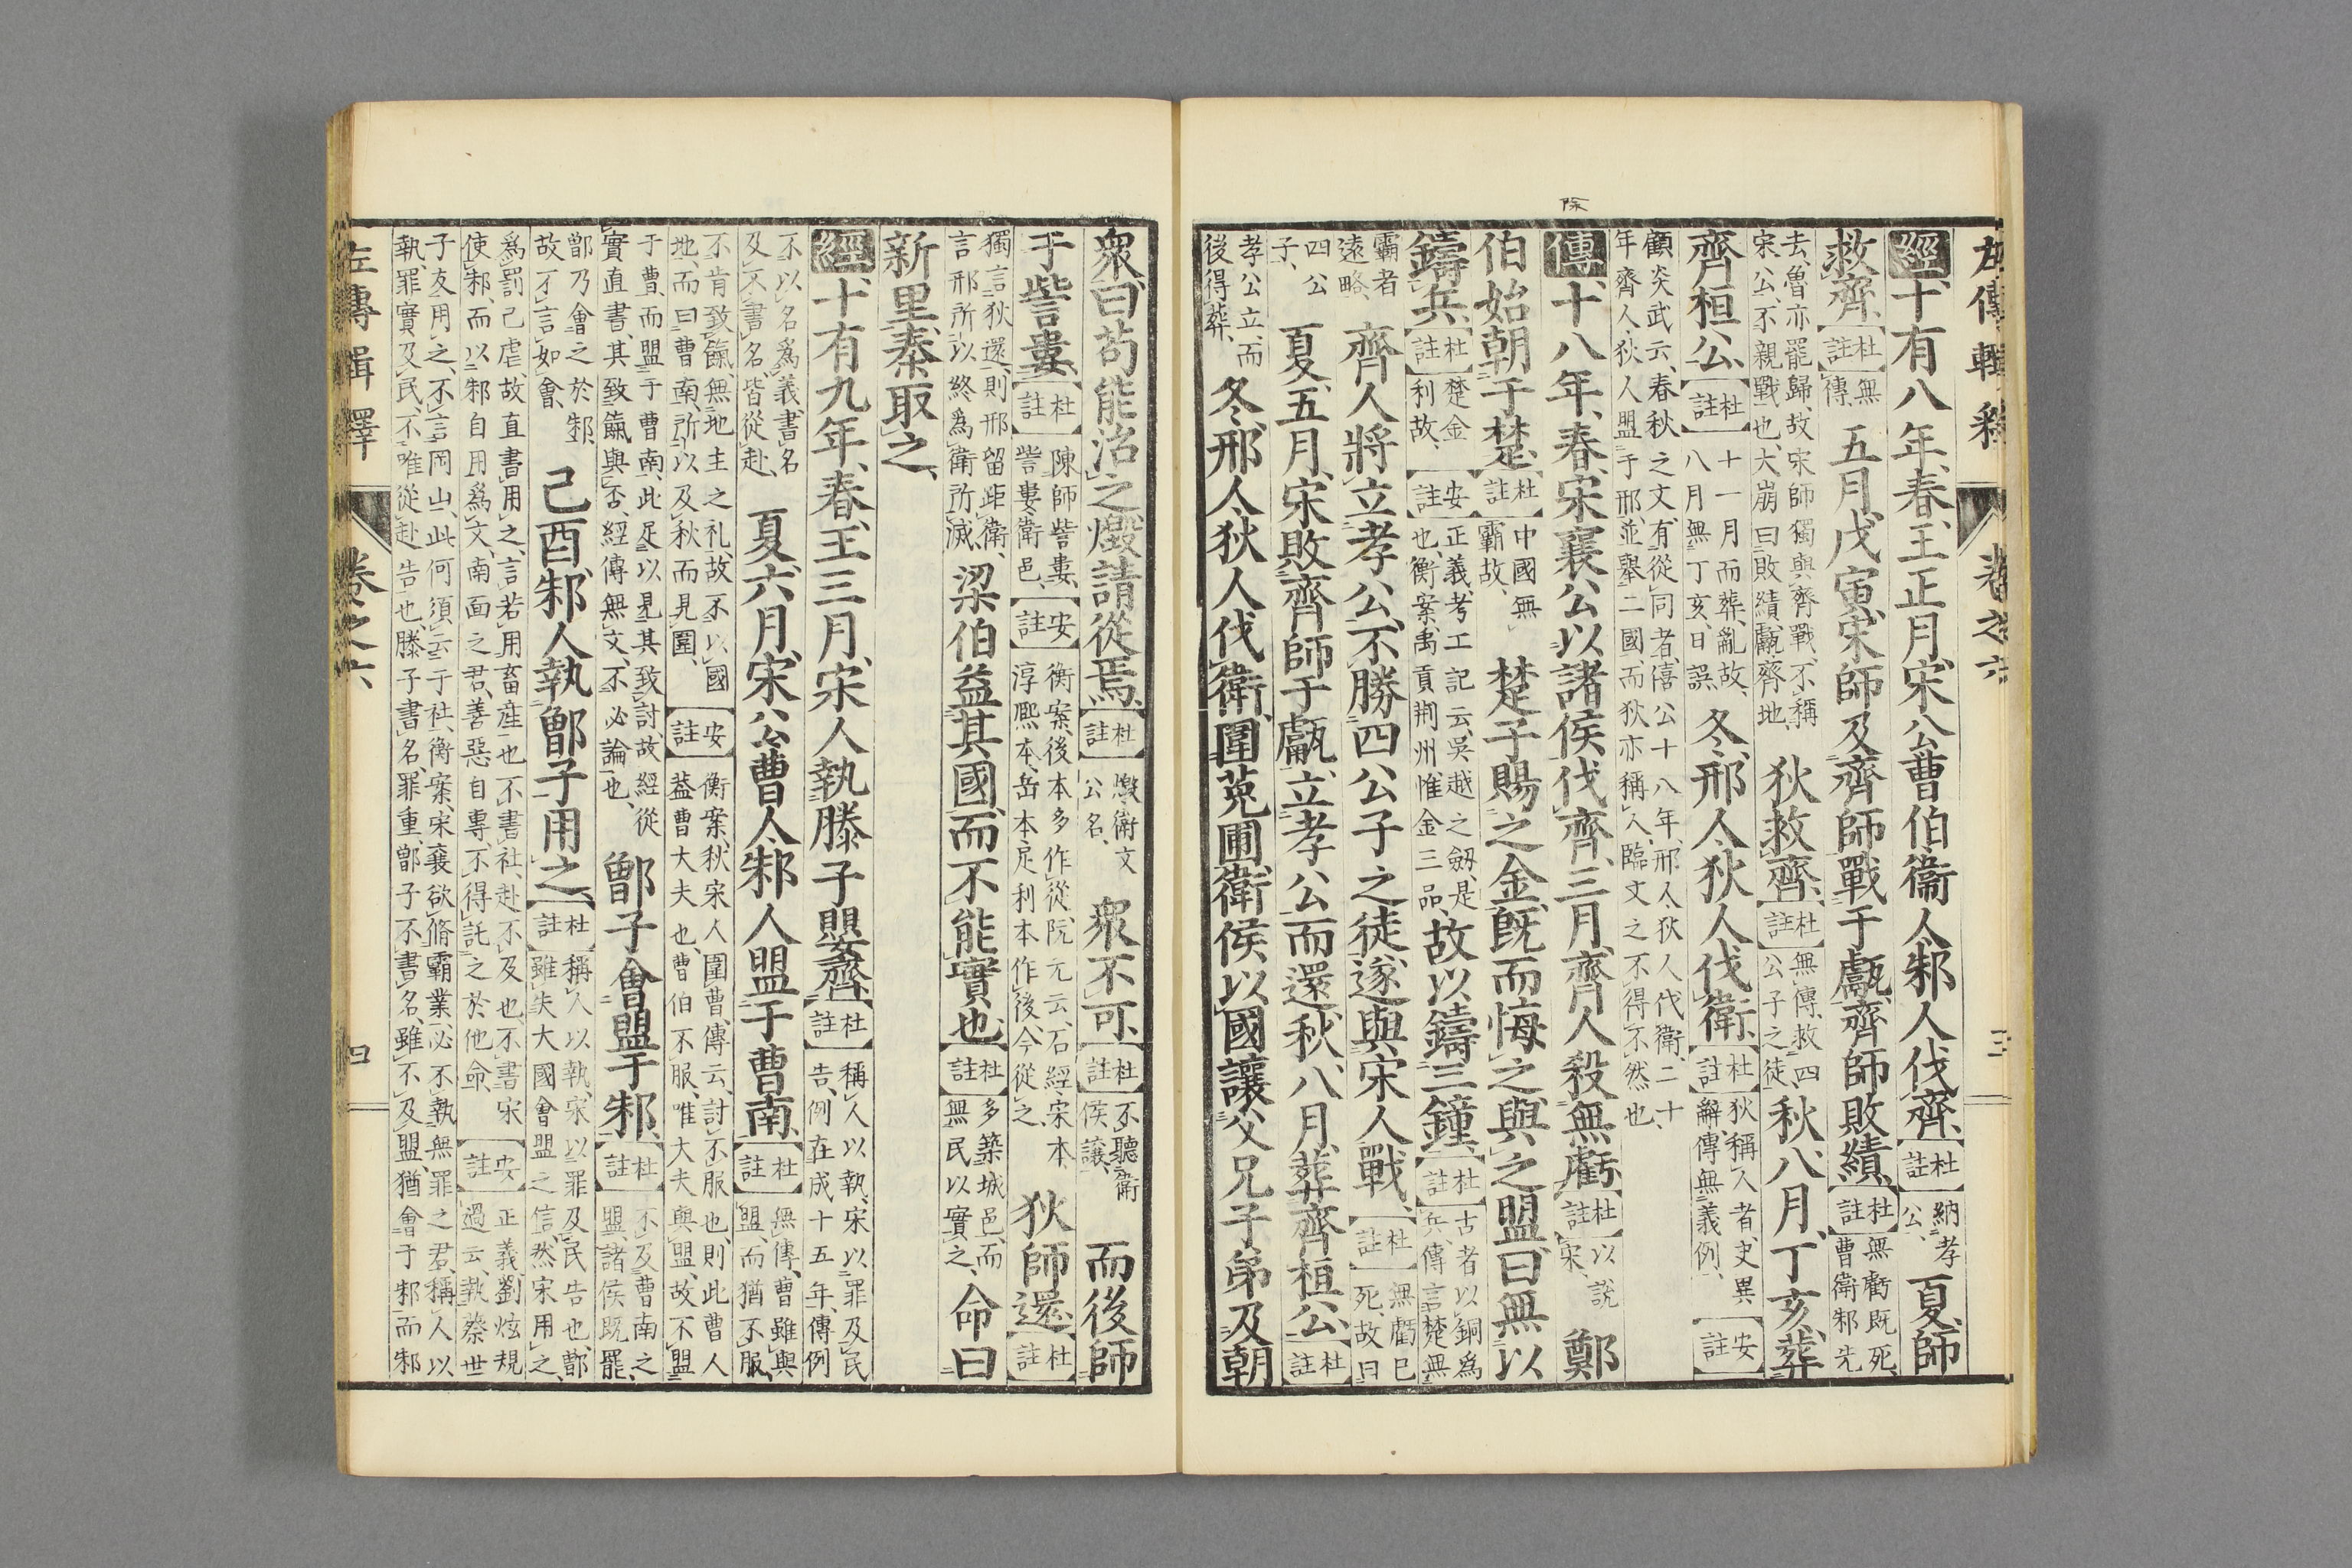 左傳輯釋 卷之六 三
除
經十有八年、春、王正月、宋公曹伯衞人邾人伐齊、杜註納孝公、夏、師
救齊、杜註無傳、五月、戊寅、宋師及齊師戰于甗、齊師敗績、杜註無虧既死、曹衛邾先
去、魯亦罷歸、故宋師獨與齊戰、不稱宋公、不親戰也、大崩曰敗績、甗、齊地、狄救齊、杜註無傳、救四公子之徒、秋、八月、丁亥、葬
齊桓公、杜註十一月而葬、亂故、八月無丁亥、日誤、冬、邢人狄人伐衛、杜註狄稱人者、史異辭、傳無義例、安註
顧炎武云、春秋之文、有從同者、僖公十八年、邢人狄人伐衛、二十年、齊人狄人盟于邢、並舉二國、而狄亦稱人、臨文之不得不然也、
傳十八年、春、宋襄公以諸侯伐齊、三月、齊人殺無虧、杜註以說宋、鄭
伯始朝于楚、杜註中國無霸故、楚子賜之金、既而悔之、與之盟曰、無以
鑄兵、杜註楚金利故、安註正義、考工記云、吳越之劔、是也、衡案、禹貢荊州惟金三品、故以鑄三鐘、杜註古者以銅爲兵、傳言楚無
霸者遠略、齊人將立孝公、不勝四公子之徒、遂與宋人戰、杜註無虧已死、故曰
四公子、夏、五月、宋敗齊師于甗、立孝公而還、秋、八月、葬齊桓公、杜註
孝公立、而後得葬、冬、邢人狄人伐衛、圍菟圃、衛侯以國讓父兄子弟及朝
衆曰、苟能治之、燬請從焉、杜註燬、衛文公名、衆不可、杜註不聽衛侯讓、而後師
于訾婁、杜註陳師訾婁、訾婁、衛邑、安註衡案、後本多作從、阮元云、石經宋本淳熙本、岳本足利本作後、今從之、狄師還、杜註
獨言狄還、則邢留距衛、言邢所以終爲衛所滅、梁伯益其國、而不能實也、杜註多築城邑、而無民以實之、命曰
新里、秦取之、
經十有九年、春、王三月、宋人執滕子嬰齊、杜註稱人以執、宋以罪及民告、例在成十五年、傳例
不以名爲義、書名及不書名、皆從赴、夏、六月、宋公曹人邾人盟于曹南、杜註無傳、曹雖與盟、而猶不服、
不肯致餼、無地主之礼、故不以國地、而曰曹南、所以及秋而見圍、安註衡案、秋宋人圍曹、傳云、討不服也、則此曹人、蓋曹大夫也、曹伯不服、唯大夫與盟、故不盟
于曹、而盟于曹南、此足以見其致討、故經從實直書、其致餼與否、經傳無文、不必論也、鄫子會盟于邾、杜註不及曹南之盟、諸侯既罷、
鄫乃會之於邾、故不言如會、己酉、邾人執鄫子用之、杜註稱人以執、宋以罪及民告也、鄫雖失大國會盟之信、然宋用之、
爲罰已虐、故直書用之、言若用畜產也、不書社、赴不及也、不書宋使邾、而以邾自用爲文、南面之君、善惡自專、不得託之於他命、安註正義、劉炫規過云、執蔡世
子友用之、不言岡山、此何須云于社、衡案、宋襄欲脩霸業、必不執無罪之君、稱人以執、罪實及民、不唯從赴告也、滕子書名、罪重、鄫子不書名、雖不及盟、猶會于邾、而邾
左傳輯釋 卷之六、 四